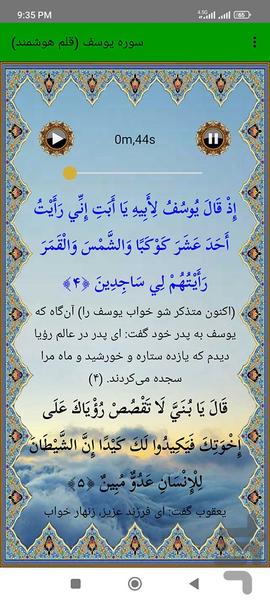 9:35 PM
4.5G
65
سوره یوسف (قلم هوشمند)
0m,44s
إِذْ قَالَ يُوسُفُ لِأَبِيهِ يَا أَبَتِ إِنِّي رَأَيْتُ
أَحَدَ عَشَرَ كَوْكَبًا وَالشَّمْسَ وَالْقَمَرَ
رَأَيْتُهُمْ لِي سَاجِدِينَ ﴿۴﴾
(اکنون متذکر شو خواب یوسف را) آن‌گاه که
یوسف به پدر خود گفت: ای پدر در عالم رؤیا
دیدم که یازده ستاره و خورشید و ماه مرا
سجده می‌کردند. (۴)
قَالَ يَا بُنَيَّ لَا تَقْصُصْ رُؤْيَاكَ عَلَى
إِخْوَتِكَ فَيَكِيدُوا لَكَ كَيْدًا إِنَّ الشَّيْطَانَ
لِلْإِنْسَانِ عَدُوٌّ مُبِينٌ ﴿۵﴾
یعقوب گفت: ای فرزند عزیز، زنهار خواب